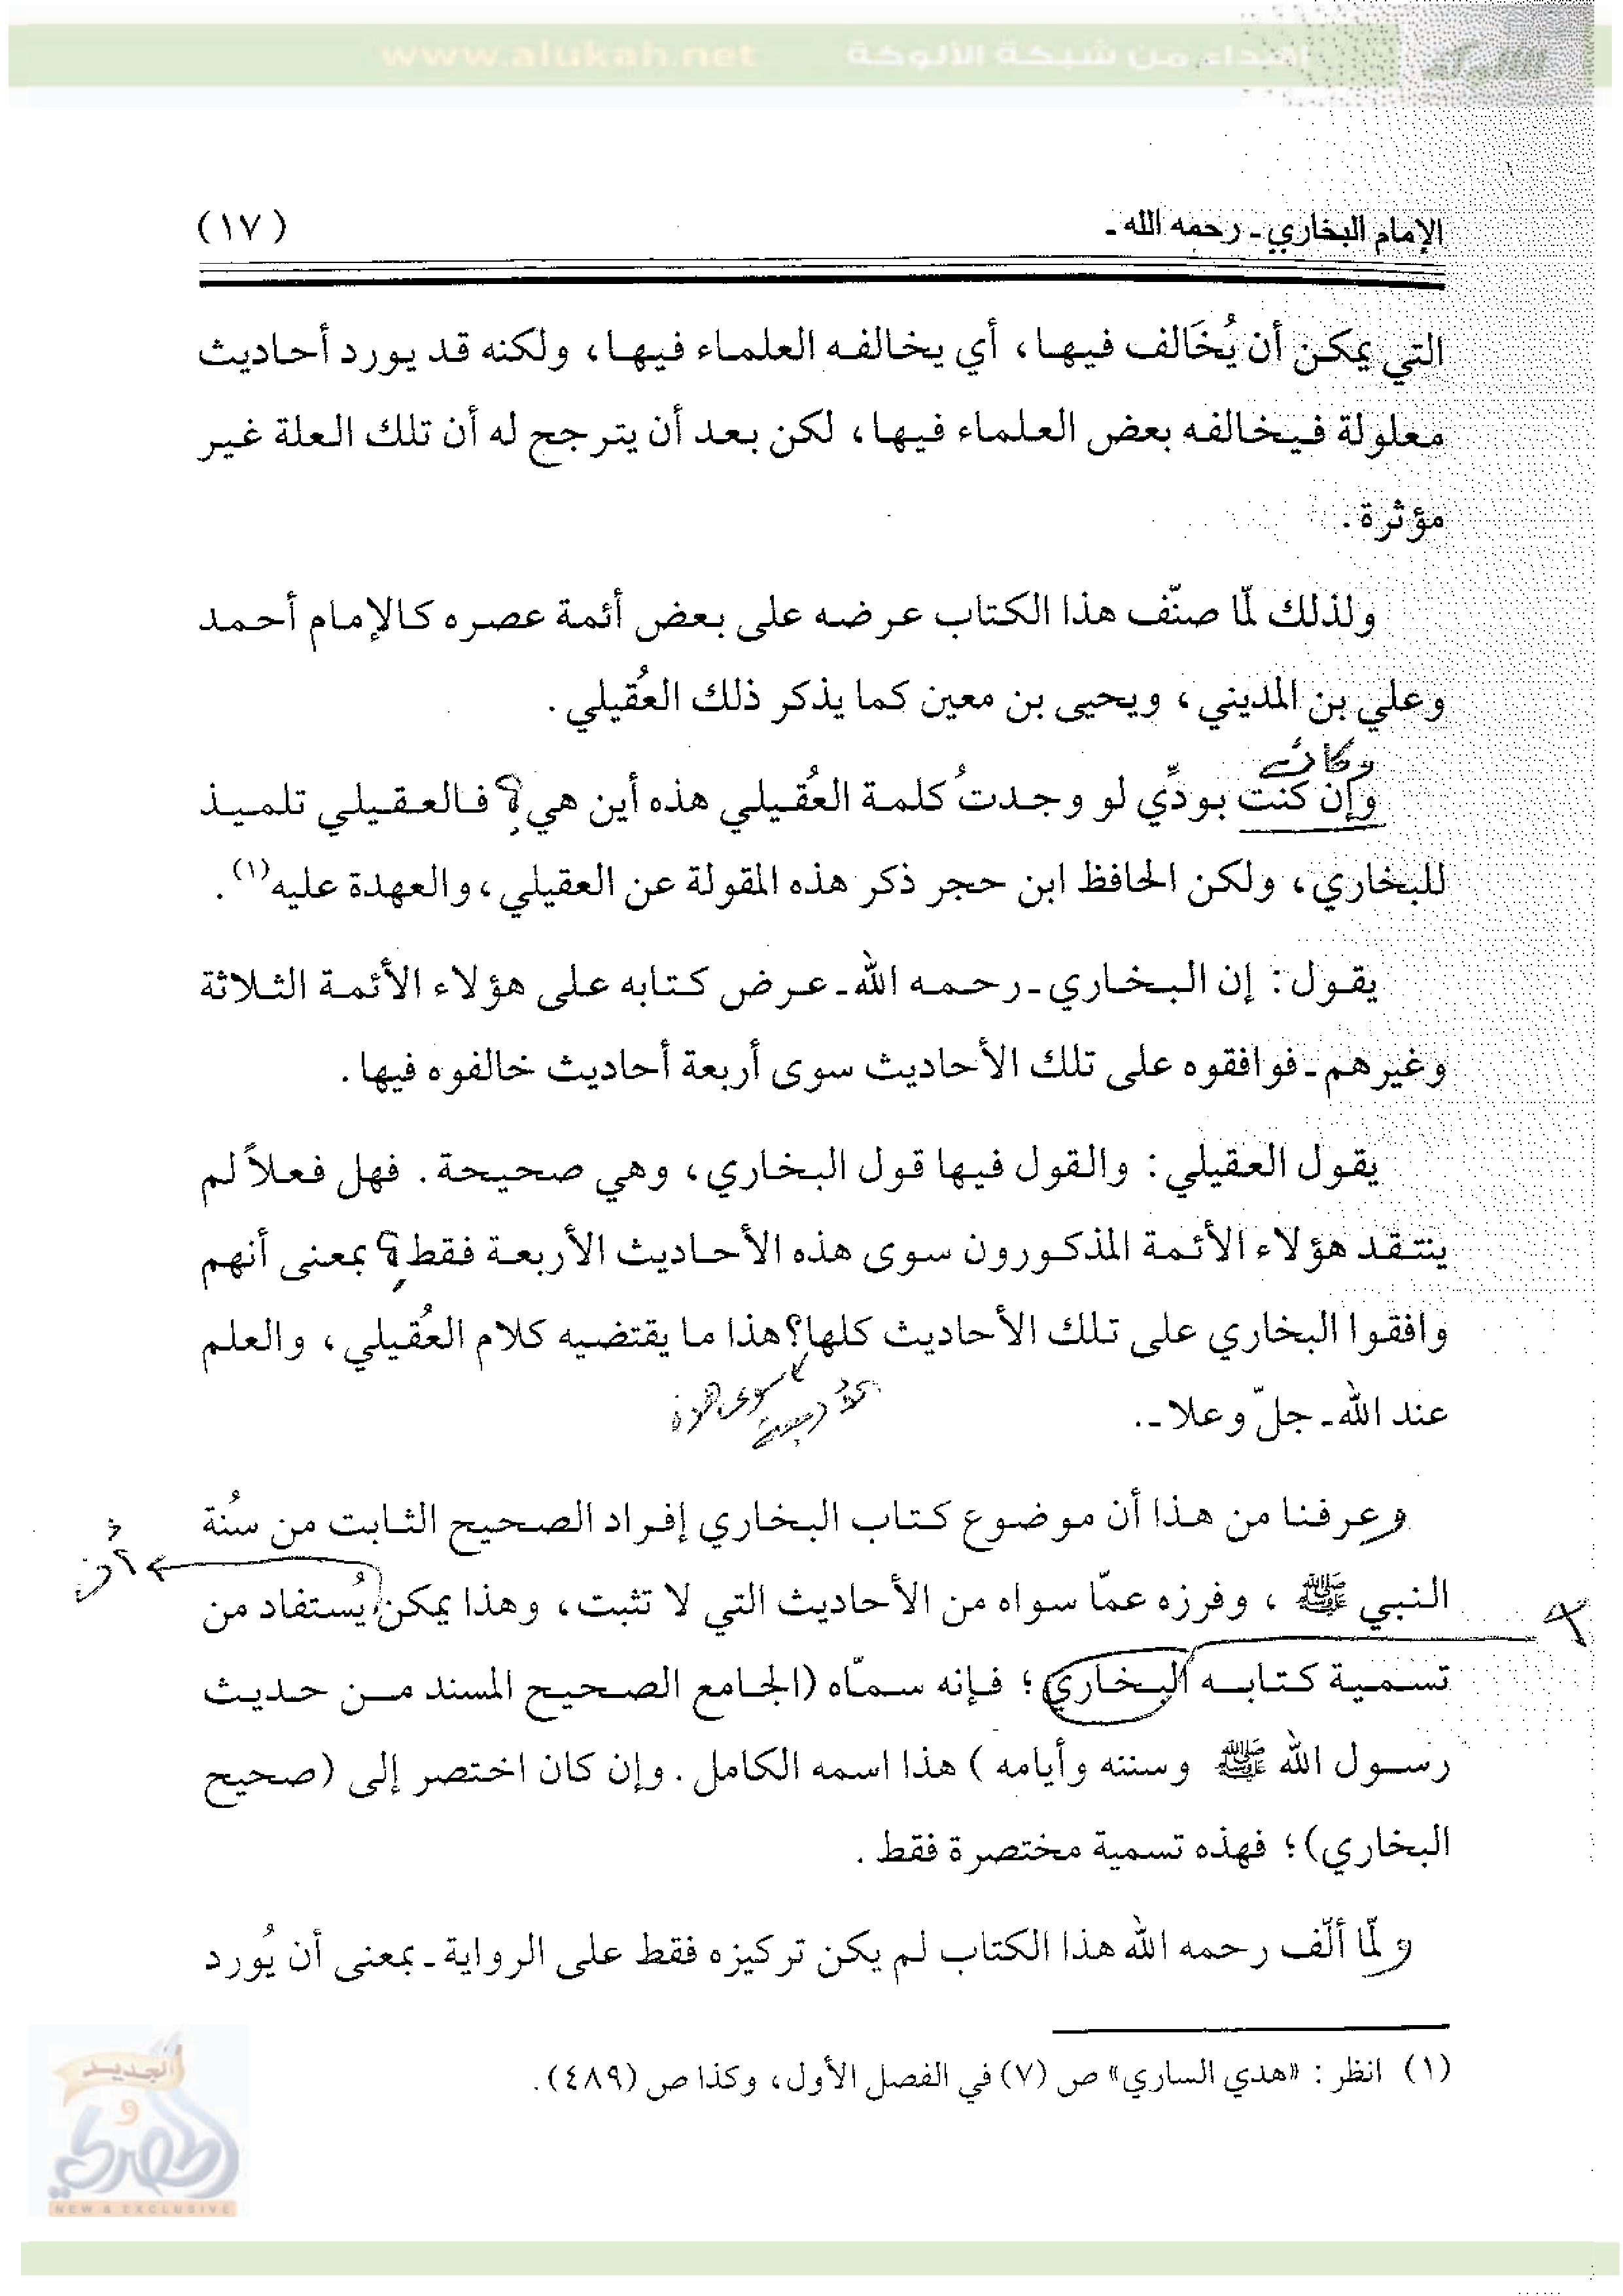 www.alukah.net
اهداء من شبكة الألوكة
الإمام البخاري ـ رحمه الله ـ
(١٧)
التي يمكن أن يُخَالف فيها، أي يخالفه العلماء فيها، ولكنه قد يورد أحاديث
معلولة فيخالفه بعض العلماء فيها، لكن بعد أن يترجح له أن تلك العلة غير
مؤثرة.
ولذلك لمّا صنّف هذا الكتاب عرضه على بعض أئمة عصره كالإمام أحمد
وعلي بن المديني، ويحيى بن معين كما يذكر ذلك العُقيلي.
وكانت
وإن كنت بودِّي لو وجدتُ كلمة العُقيلي هذه أين هي؟ فالعقيلي تلميذ
للبخاري، ولكن الحافظ ابن حجر ذكر هذه المقولة عن العقيلي، والعهدة عليه(١).
يقول: إن البخاري ـ رحمه الله ـ عرض كتابه على هؤلاء الأئمة الثلاثة
وغيرهم ـ فوافقوه على تلك الأحاديث سوى أربعة أحاديث خالفوه فيها.
يقول العقيلي: والقول فيها قول البخاري، وهي صحيحة. فهل فعلاً لم
ينتقد هؤلاء الأئمة المذكورون سوى هذه الأحاديث الأربعة فقط؟ بمعنى أنهم
وافقوا البخاري على تلك الأحاديث كلها؟ هذا ما يقتضيه كلام العُقيلي، والعلم
سوى هذه
الأربعة
عند الله ـ جلّ وعلا ـ.
وعرفنا من هذا أن موضوع كتاب البخاري إفراد الصحيح الثابت من سنُة
النبي ﷺ ، وفرزه عمّا سواه من الأحاديث التي لا تثبت، وهذا يمكن يُستفاد من
أن
تسمية كتابه البخاري؛ فإنه سمّاه (الجامع الصحيح المسند من حديث
رسول الله ﷺ وسننه وأيامه) هذا اسمه الكامل. وإن كان اختصر إلى (صحيح
البخاري)؛ فهذه تسمية مختصرة فقط.
ولمّا ألّف رحمه الله هذا الكتاب لم يكن تركيزه فقط على الرواية ـ بمعنى أن يُورد
(١) انظر: «هدي الساري» ص (٧) في الفصل الأول، وكذا ص (٤٨٩).
الجديد
و
الحصري
NEW & EXCLUSIVE